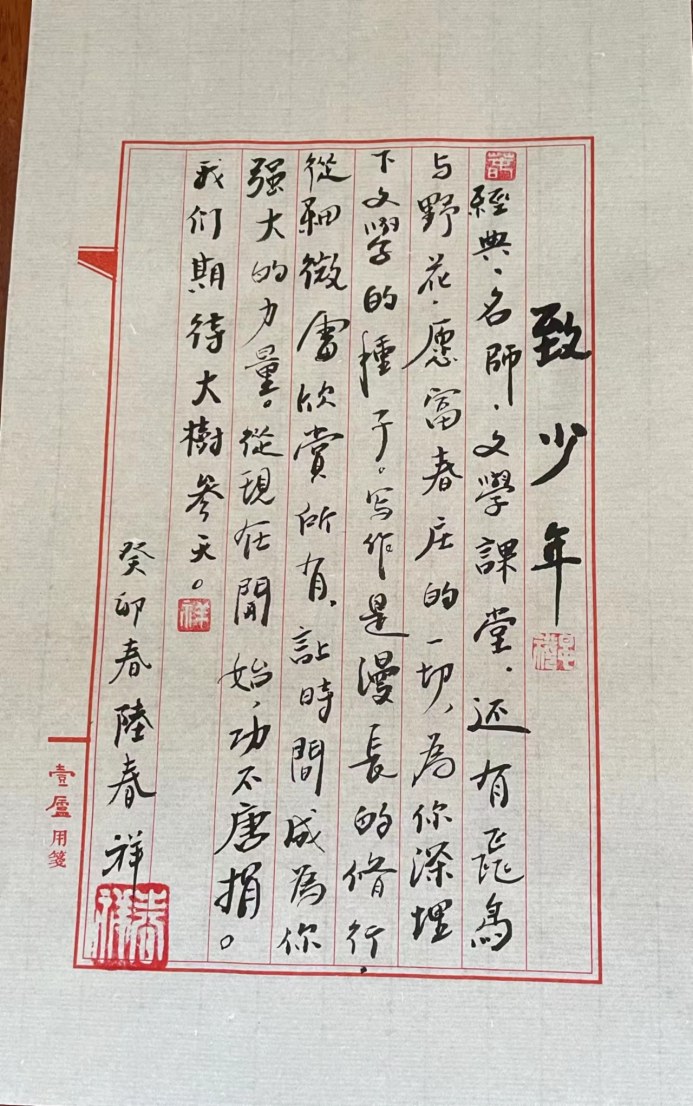 致少年
經典、名師、文學課堂,还有飛鳥
与野花,愿富春庄的一切,為你深埋
下文學的種子。写作是漫長的修行,
從細微處欣賞所有,让時間成為你
强大的力量。從現在開始,功不唐捐。
我们期待大樹参天。
癸卯春陸春祥
祥
春祥
壹廬用箋